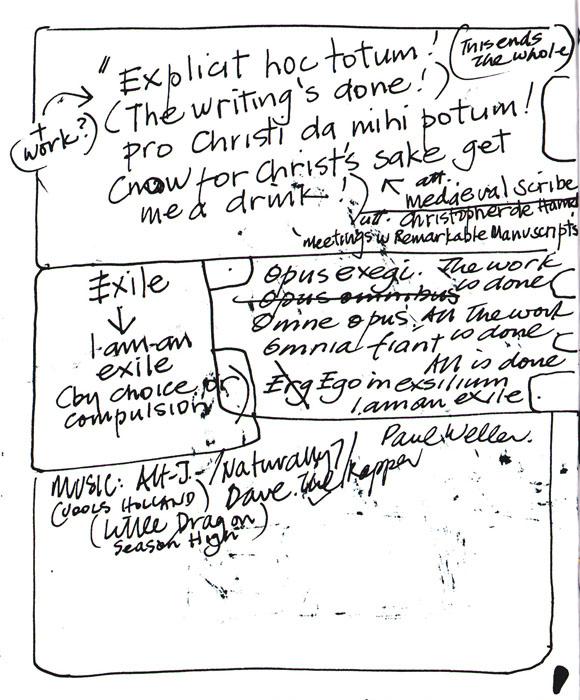 "Explicit hoc totum!
(This ends
The whole)
(The writing's done!)
+
work?)
pro Christi da mihi potum!
(now for Christ's sake get
me a drink!)
att.
medaeval scribe
att. Christopher de Hamel
meetings w Remarkable Manuscripts
Exile
I-am-an
exile
(by choice or
compulsion)
Opus exegi. The work
is done
Opus omnibus
Omne opus, All The work
is done
Omnia fiant
All is done
Erg Ego in exsilium
I am an exile.
MUSIC: Alt-J. /Naturally 7/ Paul Weller.
(JOOLS HOLLAND) Dave. The /Rapper
(Little Dragon)
Season High